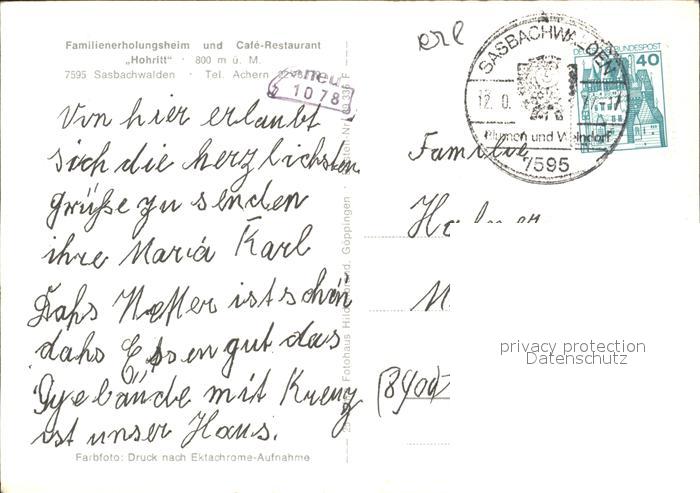 Familienerholungsheim und Café-Restaurant
„Hohritt" · 800 m ü. M.
7595 Sasbachwalden · Tel. Achern
neu
1078
Von hier erlaubt
sich die herzlichsten
grüße zu senden
ihre Maria Karl
Wetter ist schön
dahs Essen gut das
Gyebäude mit Kreuz
ist unser Haus.
Farbfoto: Druck nach Ektachrome-Aufnahme
Fotohaus Hildenbrand, Göppingen
erl
SASBACHWALDEN
12.
Blumen und Weindorf
7595
BUNDESPOST
40
Familie
privacy protection
Datenschutz